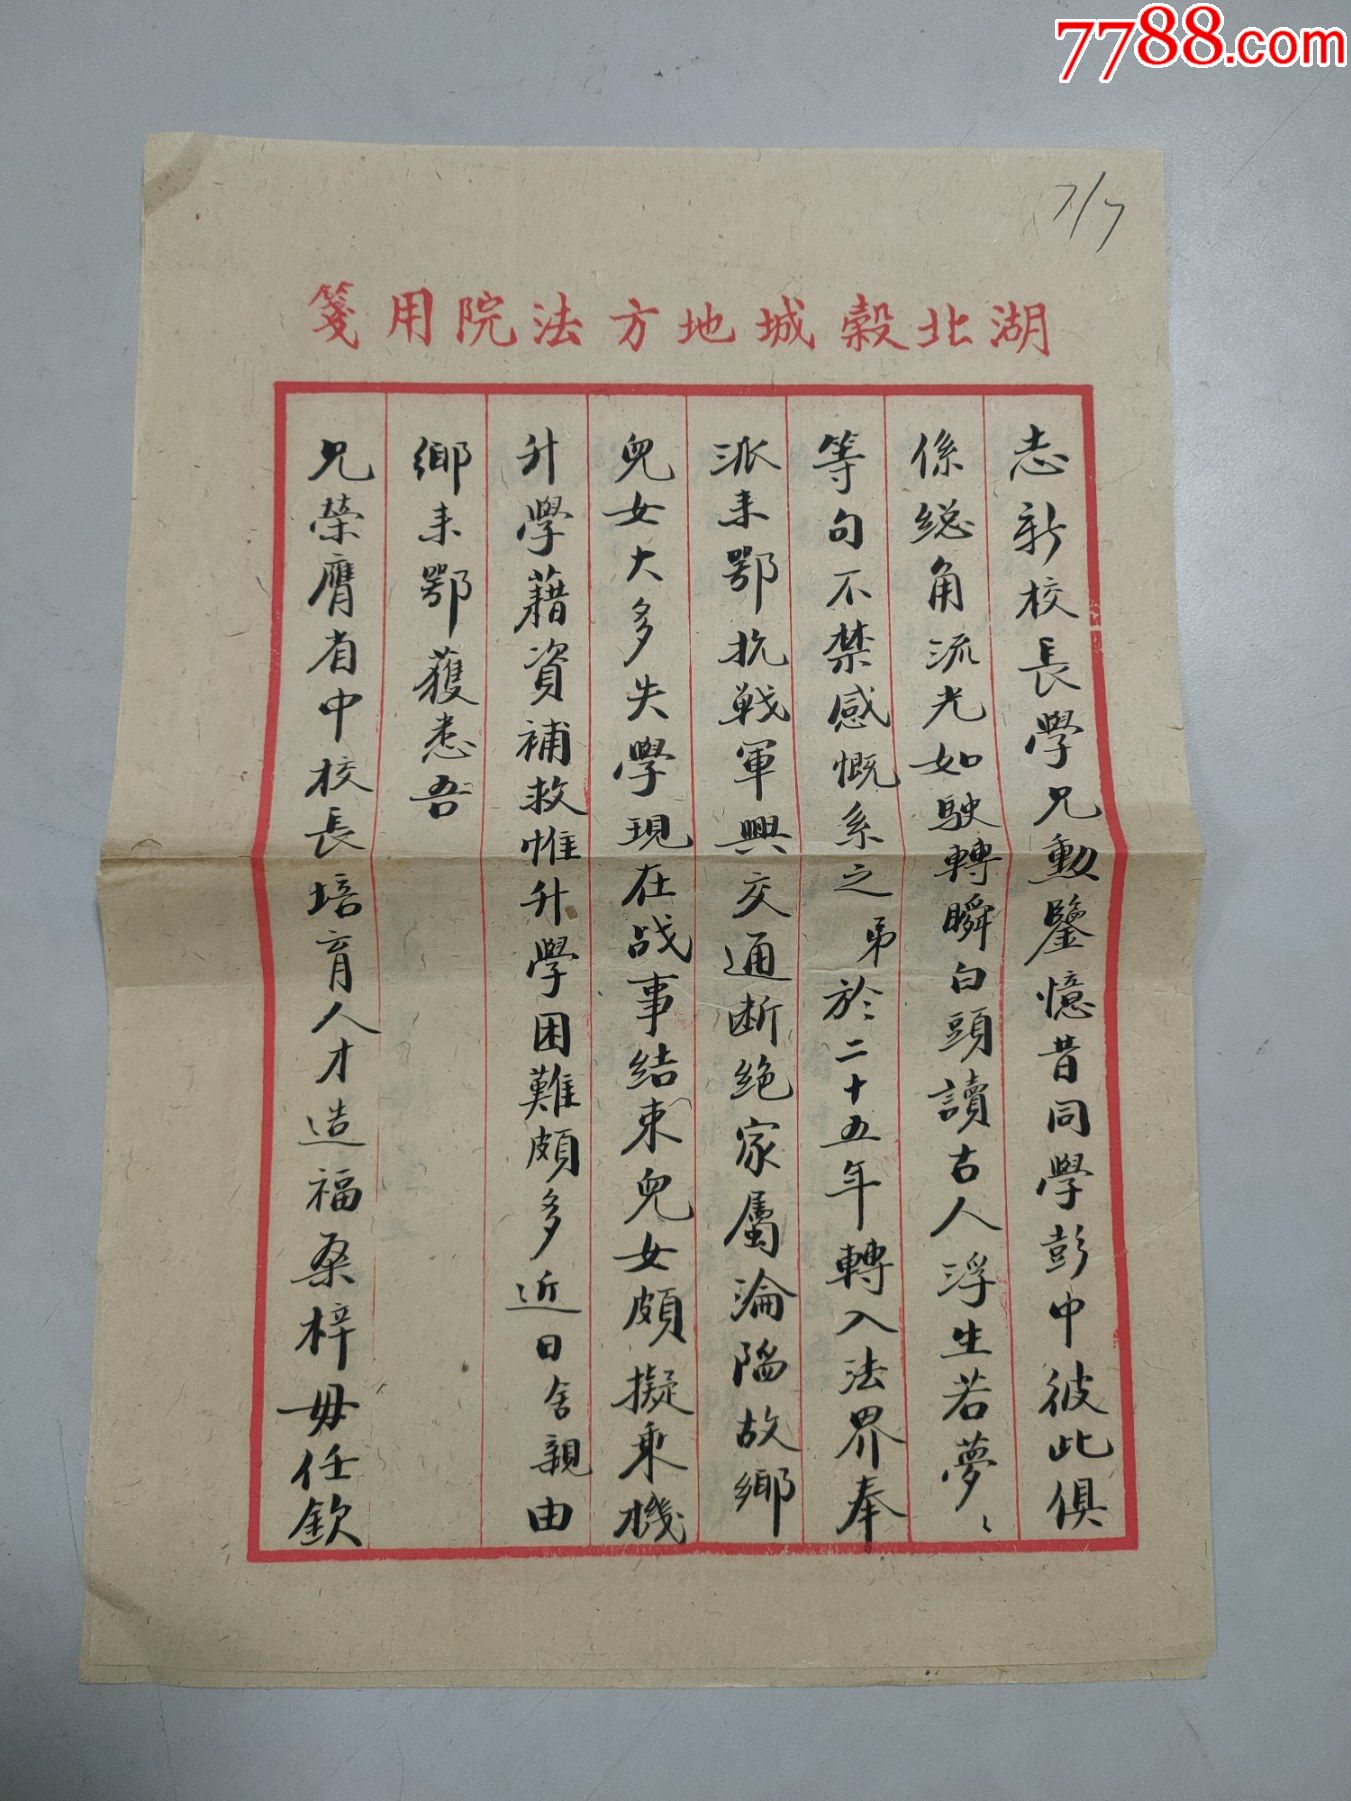 7788.com
7/7
湖北穀城地方法院用箋
志新校長學兄勳鑒憶昔同學彭中彼此俱
係総角流光如駛轉瞬白頭讀古人浮生若夢〻
等句不禁感慨系之弟於二十五年轉入法界奉
派来鄂抗戰軍興交通断絶家屬淪陥故鄉
兒女大多失學現在战事结束兒女頗擬乘機
升學藉資補救惟升學困難頗多近日舍親由
鄉来鄂獲悉吾
兄榮膺省中校長培育人才造福桑梓毋任欽